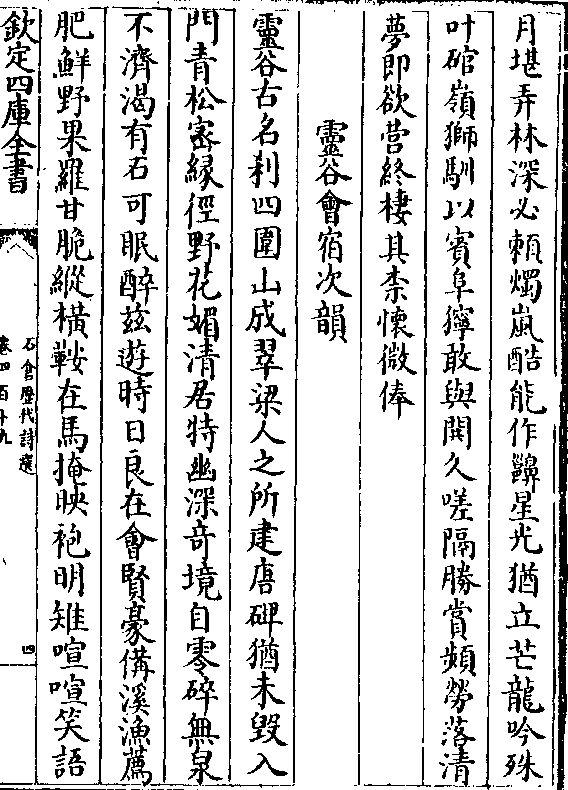 月堪弄林深必頼燭嵐酷能作鼴星光猶立芒龍吟殊
叶硿嶺獅馴以賓阜獰敢與鬬久嗟隔勝賞頻勞落清
夢即欲营終棲其柰懷微俸
靈谷會宿次韻
靈谷古名刹四圍山成翠梁人之所建唐碑猶未毁入
門青松密緣徑野花媚清居特幽深竒境自零碎無泉
不濟渴有石可眠醉兹遊時日良在會賢豪俻溪漁薦
肥鮮野果羅甘脆縱横鞍在馬掩映袍明雉喧喧笑語
欽定四庫全書
石倉歴代詩選
卷四百十九
四